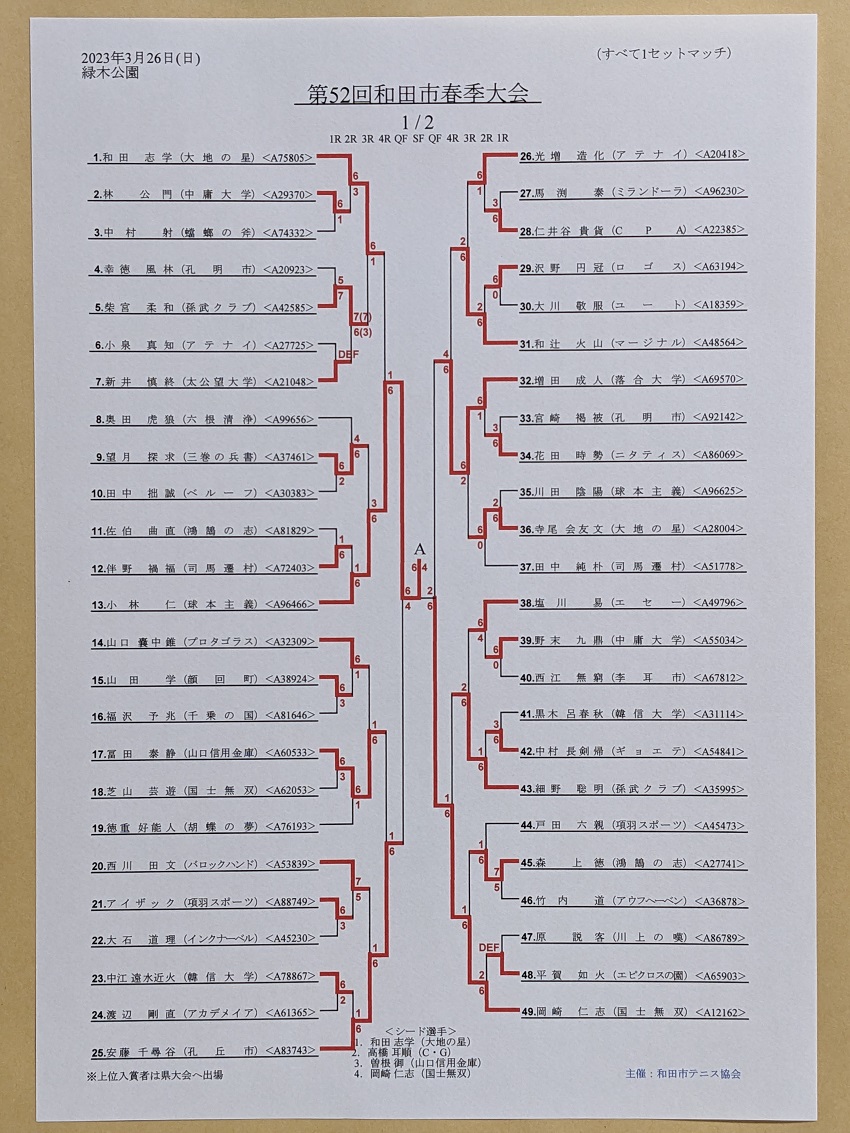 2023年3月26日(日)
(すべて1セットマッチ)
緑木公園
第52回和田市春季大会
1/2
1R 2R 3R 4R QF SF QF 4R 3R 2R 1R
1.和田 志学(大地の星) <A75805>
2.林 公門(中庸大学) <A29370>
3.中村 射(蟷螂の斧) <A74332>
4.幸徳 風林(孔明市) <A20923>
5.柴宮 柔和(孫武クラブ) <A42585>
6.小泉 真知(アテナイ) <A27725>
7.新井 慎終(太公望大学) <A21048>
8.奥田 虎狼(六根清浄) <A99656>
9.望月 探求(三巻の兵書) <A37461>
10.田中 拙誠(ベルーフ) <A30383>
11.佐伯 曲直(鴻鵠の志) <A81829>
12.伴野 禍福(司馬遷村) <A72403>
13.小林 仁(球本主義) <A96466>
14.山口 嚢中錐(プロタゴラス) <A32309>
15.山田 学(顔回町) <A38924>
16.福沢 予兆(千乗の国) <A81646>
17.冨田 泰静(山口信用金庫) <A60533>
18.芝山 芸遊(国士無双) <A62053>
19.徳重 好能人(胡蝶の夢) <A76193>
20.西川 田文(バロックハンド) <A53839>
21.アイザック(項羽スポーツ) <A88749>
22.大石 道理(インクナーベル) <A45230>
23.中江 遠水近火(韓信大学) <A78867>
24.渡辺 剛直(アカデメイア) <A61365>
25.安藤 千尋谷(孔丘市) <A83743>
26.光増 造化(アテナイ) <A20418>
27.馬渕 泰(ミランドーラ) <A96230>
28.仁井谷 貴貨(CPA) <A22385>
29.沢野 円冠(ロゴス) <A63194>
30.大川 敬服(ユート) <A18359>
31.和辻 火山(マージナル) <A48564>
32.増田 成人(落合大学) <A69570>
33.宮崎 褐被(孔明市) <A92142>
34.花田 時勢(ニタティス) <A86069>
35.川田 陰陽(球本主義) <A96625>
36.寺尾 会友文(大地の星) <A28004>
37.田中 純朴(司馬遷村) <A51778>
38.塩川 易(エセー) <A49796>
39.野末 九鼎(中庸大学) <A55034>
40.西江 無窮(李耳市) <A67812>
41.黒木 呂春秋(韓信大学) <A31114>
42.中村 長剣帰(ギョエテ) <A54841>
43.細野 聡明(孫武クラブ) <A35995>
44.戸田 六親(項羽スポーツ) <A45473>
45.森 上徳(鴻鵠の志) <A27741>
46.竹内 道(アウフヘーベン) <A36878>
47.原 説客(川上の嘆) <A86789>
48.平賀 如火(エピクロスの園) <A65903>
49.岡崎 仁志(国士無双) <A12162>
6
3
6
1
6
1
5
7
7(7)
6(3)
DEF
1
6
4
6
6
2
3
6
1
6
1
6
6
1
6
3
1
6
6
3
6
1
1
6
7
5
6
3
1
6
6
2
1
6
6
4
A
6 4
2
6
6
1
3
6
2
6
6
0
2
6
4
6
6
1
3
6
6
2
2
6
6
0
6
4
6
0
2
6
3
6
1
6
1
6
1
6
7
5
1
6
DEF
2
6
<シード選手>
1. 和田 志学(大地の星)
2. 高橋 耳順(C・G)
3. 曽根 御(山口信用金庫)
4. 岡崎 仁志(国士無双)
※上位入賞者は県大会へ出場
主催:和田市テニス協会